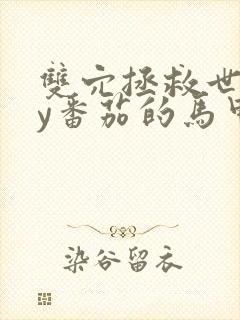 雙穴拯救世
y番茄的馬甲
染谷留衣